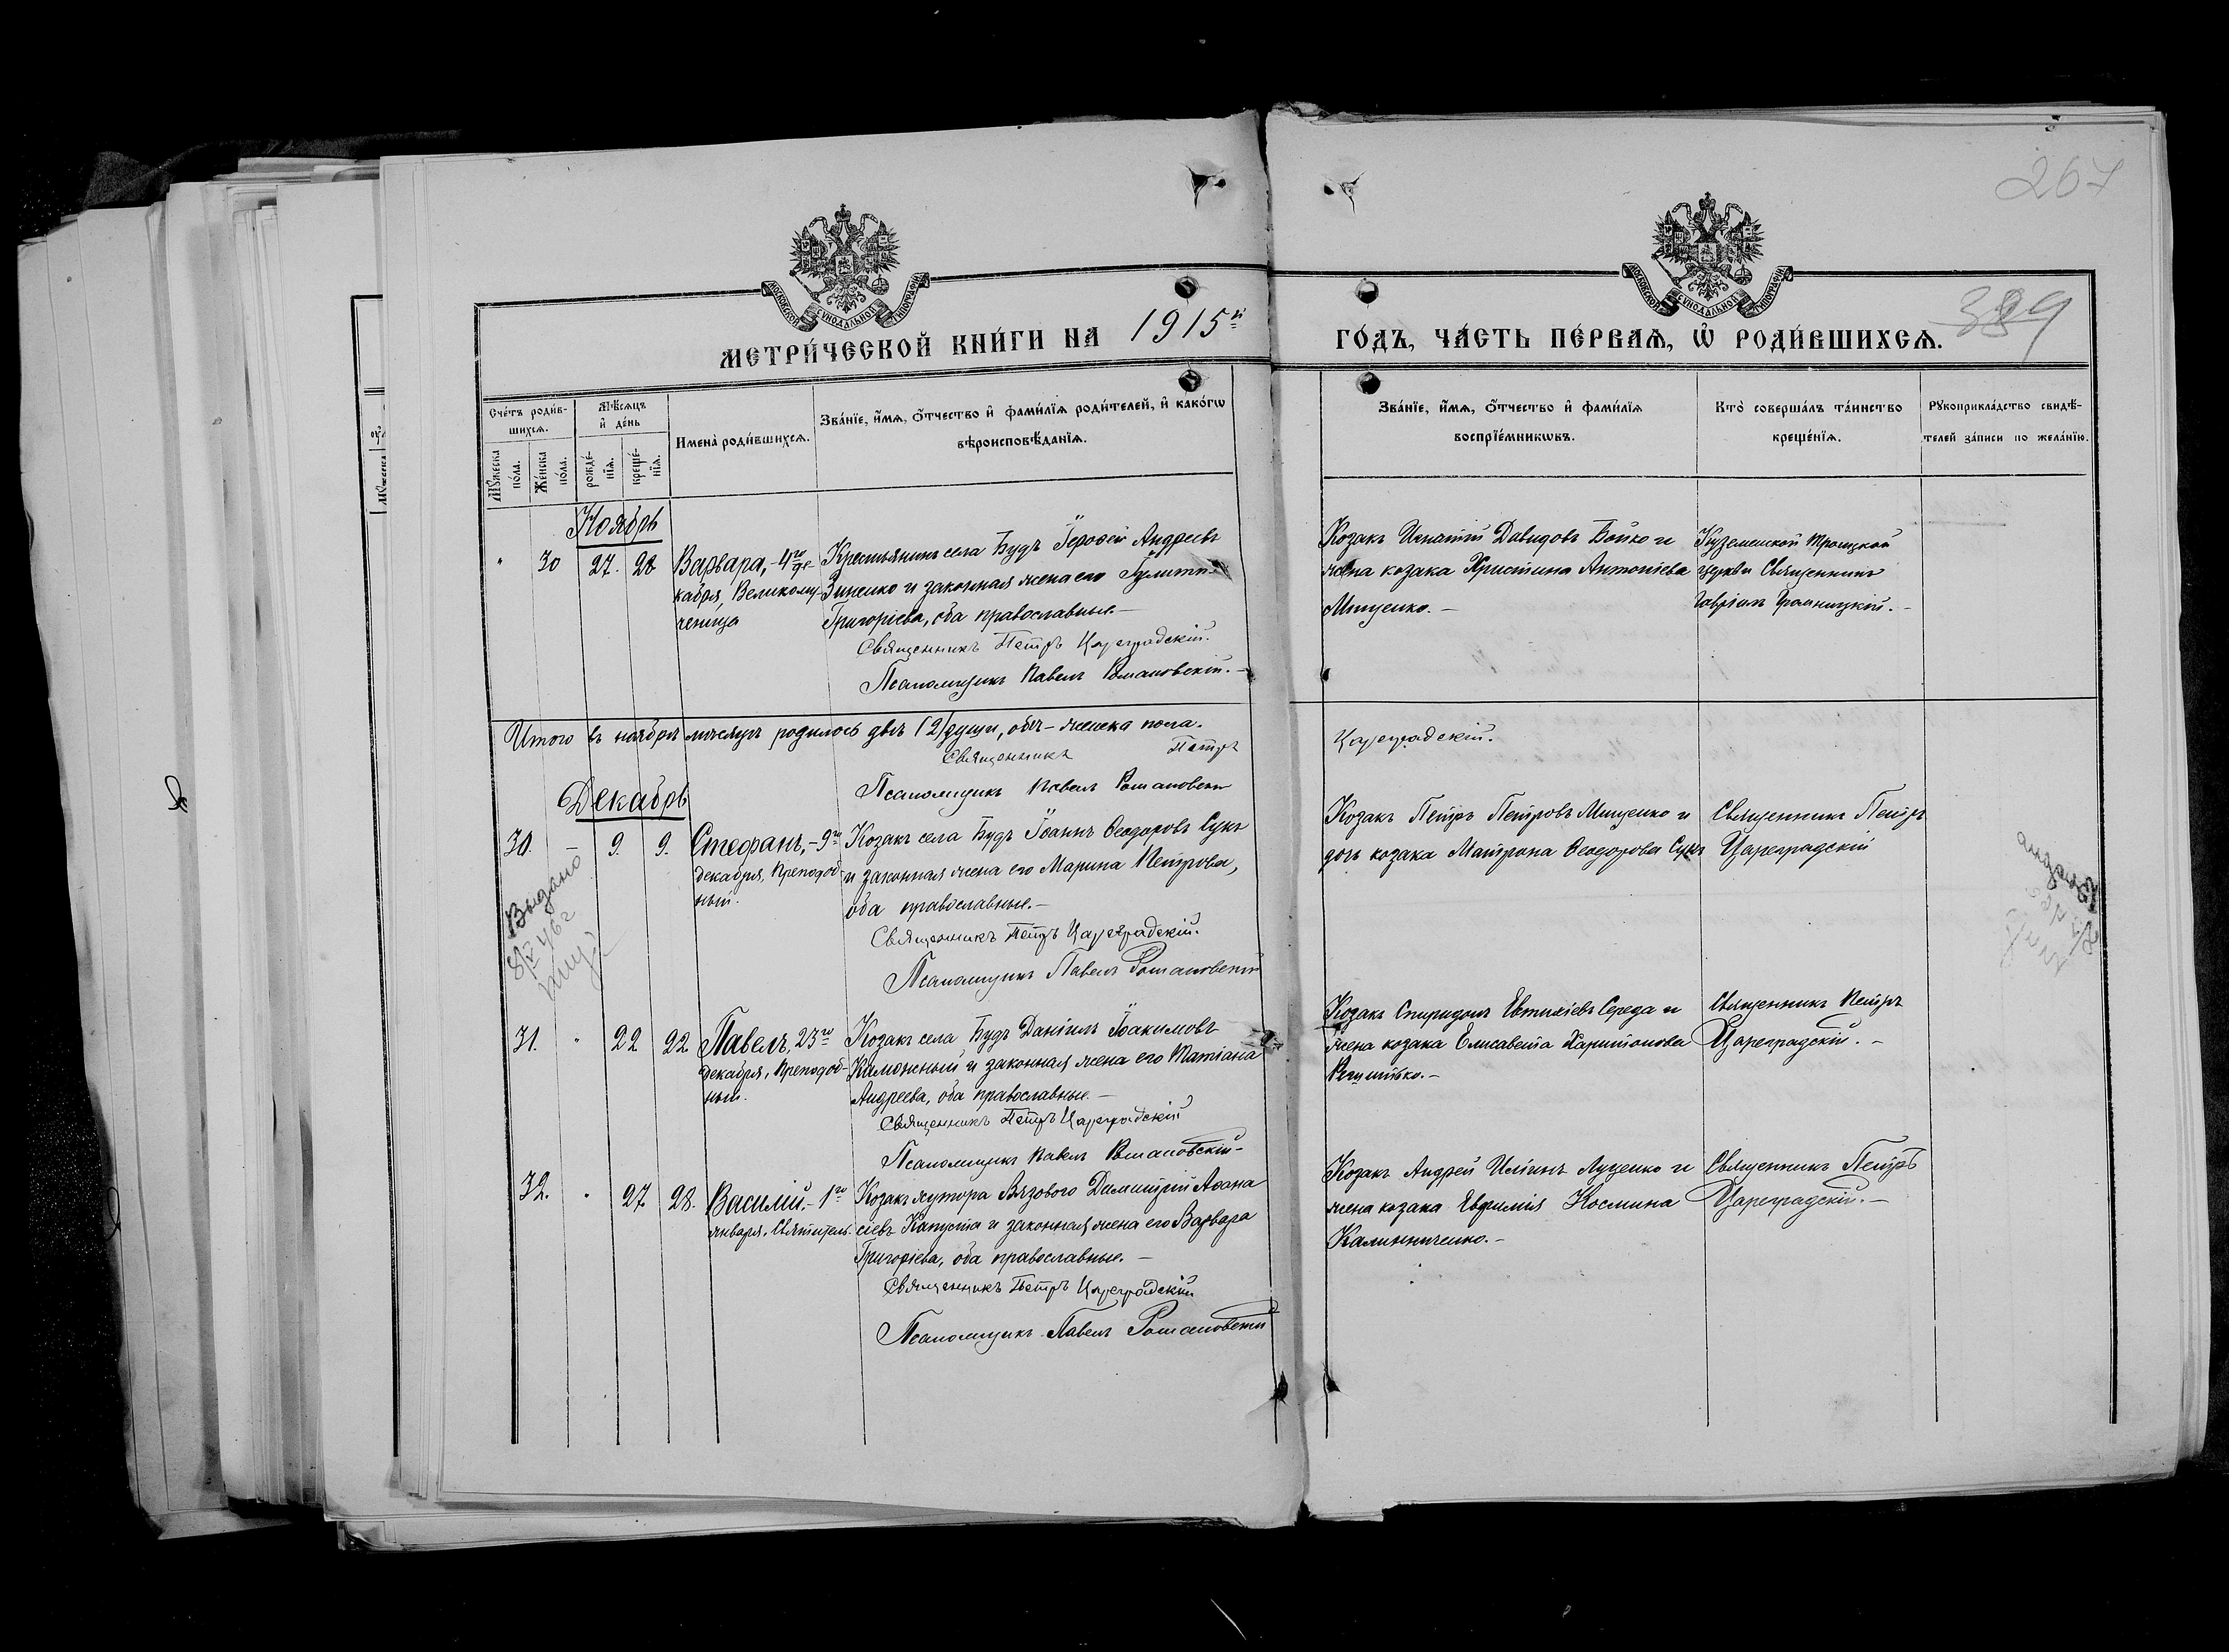 267
МОСКОВСКОЙ СУНОДАЛЬНОЙ ТИПОГРАФІИ
МОСКОВСКОЙ СУНОДАЛЬНОЙ ТИПОГРАФІИ
МЕТРИ́ЧЕСКОЙ КНИ́ГИ НА 1915й ГО́ДЪ, ЧА́СТЬ ПЕ́РВАѦ, Ѡ РОДИ́ВШИХСѦ.
Сче́тъ роди́в-
шихсѧ.
Мѣ́сѧцъ
и҆ де́нь
Мꙋ́жеска
по́ла.
Же́нска
по́ла.
рожде́-
нїѧ.
креще́-
нїѧ.
Имена̀ роди́вшихсѧ.
Зва́нїе, и҆́мѧ, ѻ҆́тчество и҆ фами́лїѧ роди́телей, и҆ како́гѡ
вѣроисповѣ́данїѧ.
Зва́нїе, и҆́мѧ, ѻ҆́тчество и҆ фами́лїѧ
воспрїе́мникѡвъ.
Кто̀ соверша́лъ та́инство
креще́нїѧ.
Рꙋкоприкла́дство свидѣ́-
телей за́писи по жела́нїю.
Ноябрь
" 30 27. 28 Варвара, - 4го де-
кабря, Великому-
ченица
Крестьянинъ села Будъ Іерофей Андреевъ
Зиненко и законная жена его
Григоріева, оба православные. -
Священникъ Петръ Цареградскій.
Псаломщикъ Павелъ Романовскій. -
Козакъ Игнатій Давидовъ Бойко и
жена козака Христина Антоніева
Мищенко. -
Куземенской Троицкой
церкви Священникъ
Гавріилъ
Итого въ ноябрѣ мѣсяцѣ родилось двѣ (2) души, обѣ - женска пола.
Священникъ Петръ Цареградскій.
Псаломщикъ Павелъ Романовскій
Декабрь
30. - 9. 9. Стефанъ, - 9го
декабря, Преподоб-
ный.
Козакъ села Будъ Іоаннъ Ѳеодоровъ Сукъ
и законная жена его Марина Петрова,
оба православные. -
Священникъ Петръ Цареградскій.
Псаломщикъ Павелъ Романовскій
Козакъ Петръ Петровъ Мищенко и
дочь козака Матрона Ѳеодорова Сукъ
Священникъ Петръ
Цареградскій
Выдано
8/IV 46 г
31. " 22 22 Павелъ, 23го
декабря, Преподоб-
ный.
Козакъ села Будъ Даніилъ Іоакимовъ
и законная жена его Татіана
Андреева, оба православные. -
Священникъ Петръ Цареградскій
Псаломщикъ Павелъ Романовскій -
Козакъ Спиридонъ Евтихіевъ Середа и
жена козака Елисавета Харитонова
Священникъ Петръ
Цареградскій. -
32. " 27 28. Василій. - 1го
января, Святитель.
Козакъ хутора Вязового Димитрій Аѳана
сіевъ Капуста и законная жена его Варвара
Григоріева, оба православные. -
Священникъ Петръ Цареградскій
Псаломщикъ Павелъ Романовскій
Козакъ Андрей Иліинъ Луценко и
жена козака Евфимія Космина
Калиниченко. -
Священникъ Петръ
Цареградскій. -